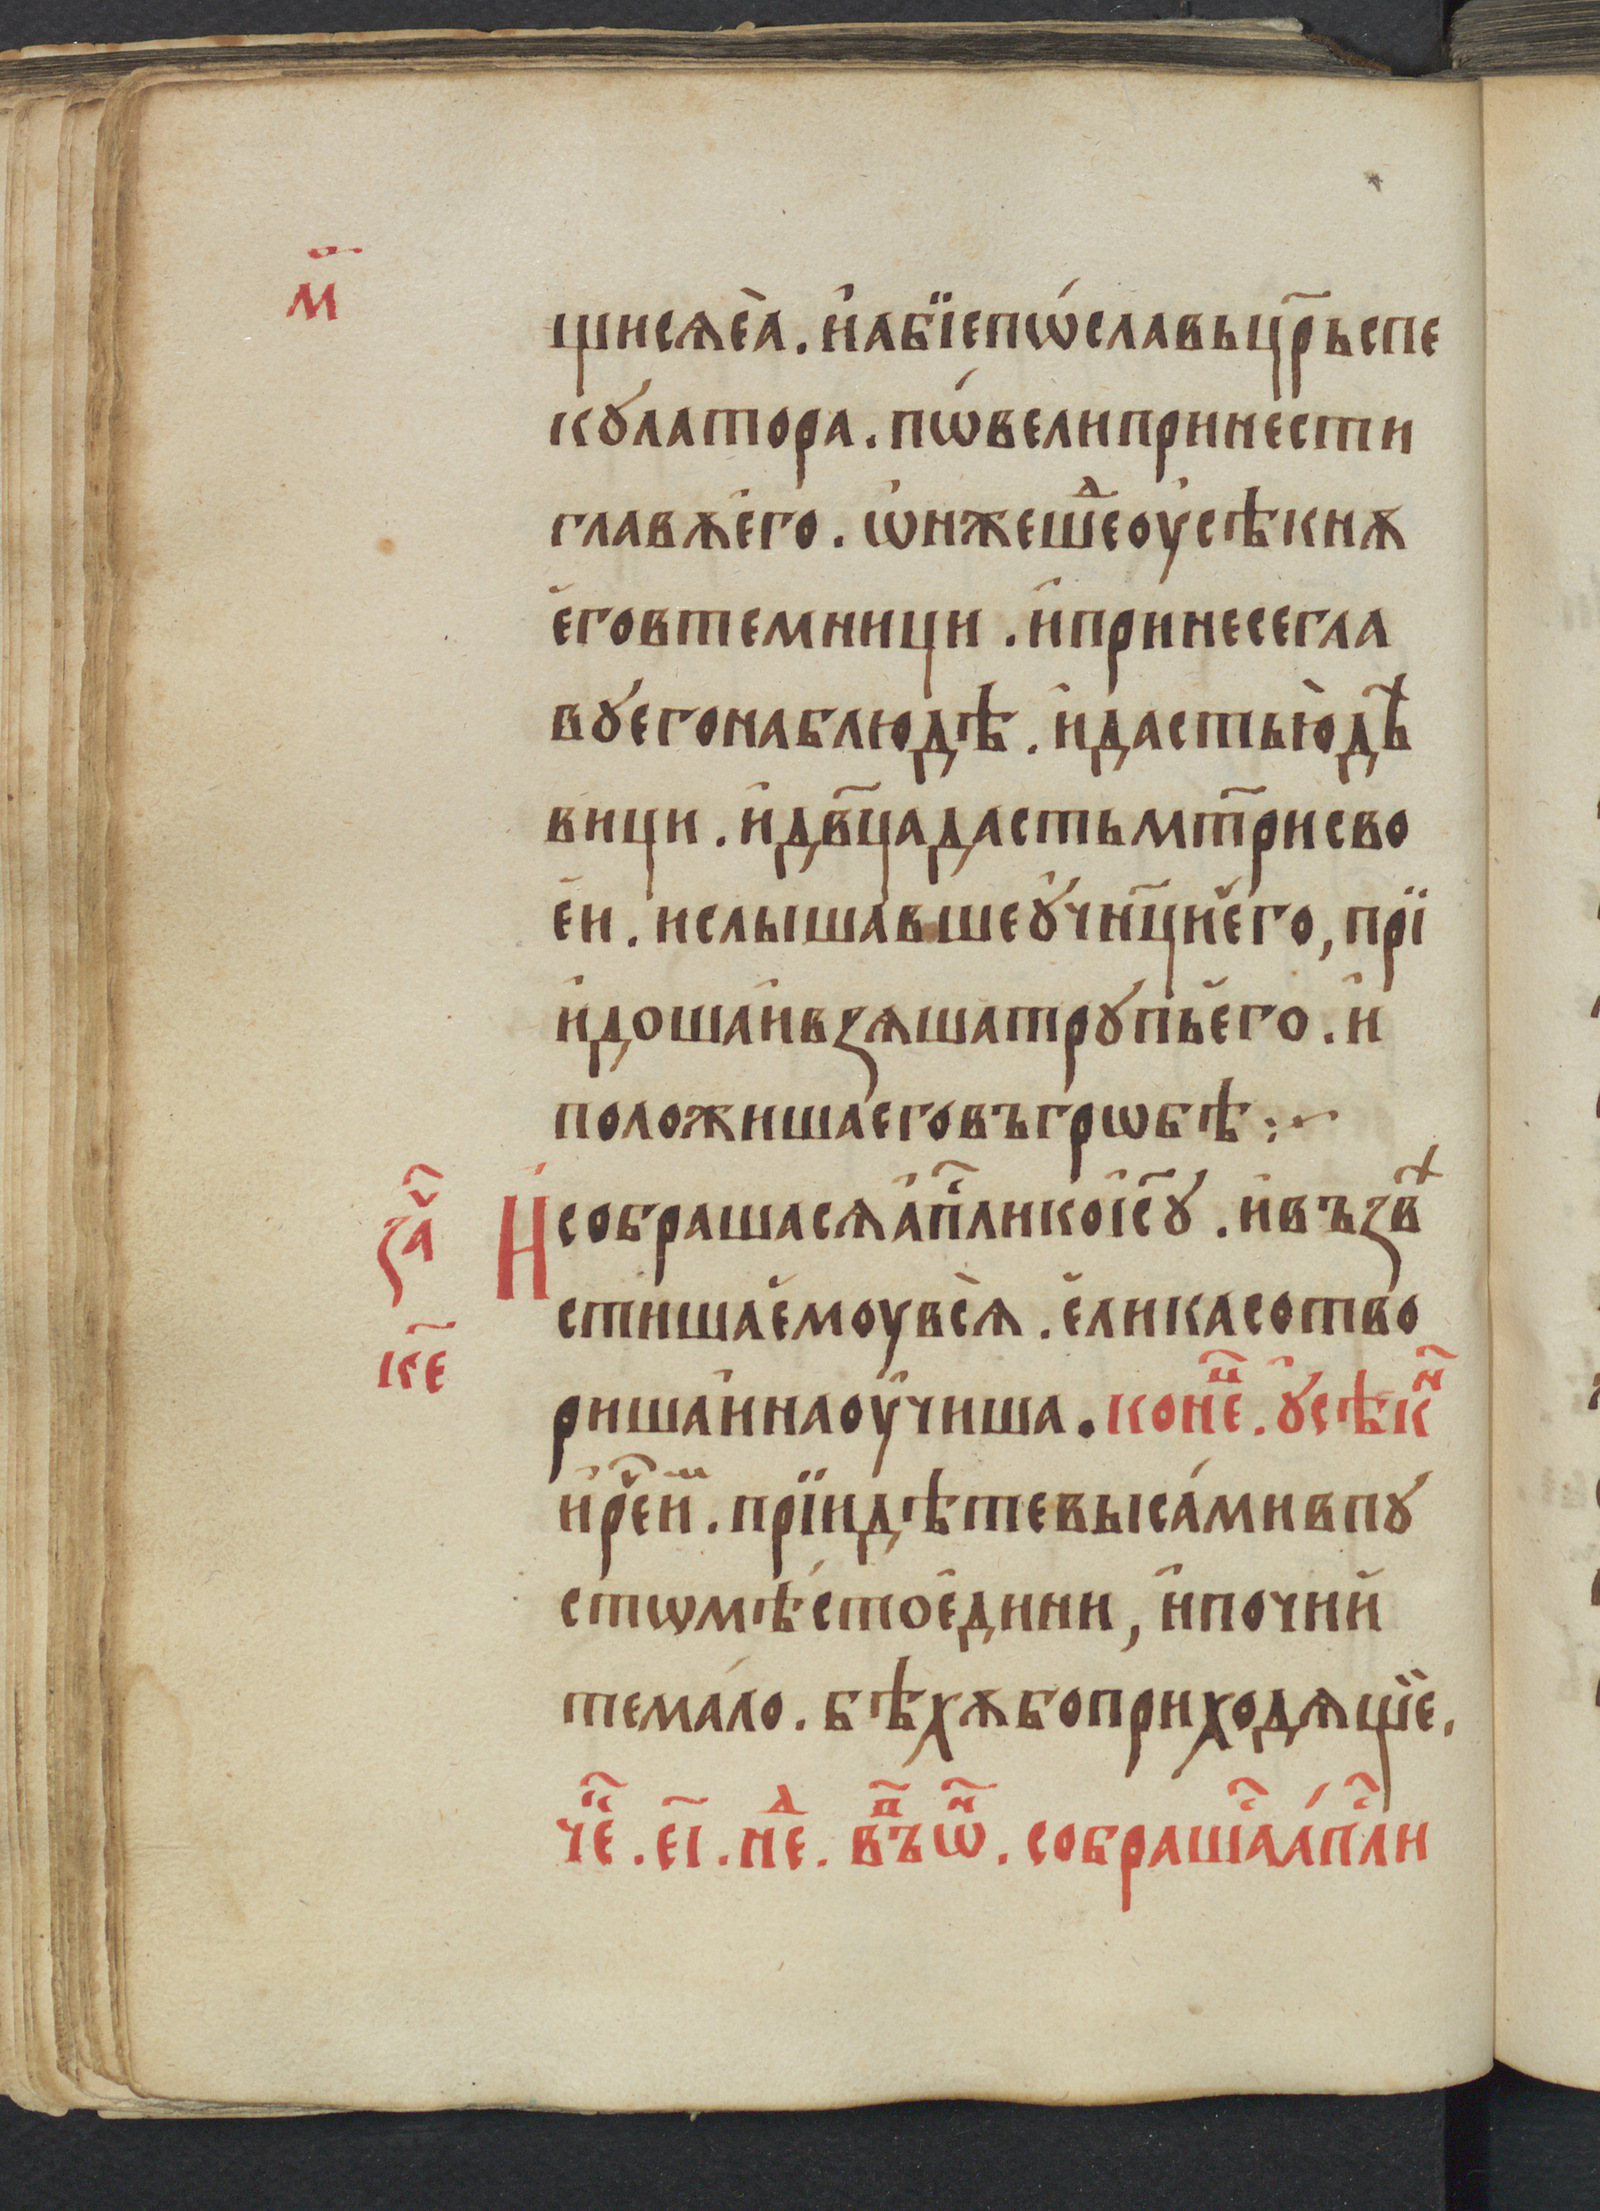 м҃
щисѧеа̀ . и҆абїепѡ́славьцр҃ьспе
кꙋ́латора . пѡ́велипринести
главѫе҆го . ѡ҆нжешеⷣоусѣкнѫ
е҆говтемници . и҆принесегла
вꙋ́егонаблюдѣ . и҆дастью̀дѣ
вици . и҆дв҃цадастьмт҃рисво
е҆и . ислышавшеꙋ҆чн҃цие҆го , прїи
и҆дошаи҆взѧшатрꙋ́пье҆го . и҆
положишаеговъгрѡбѣ :~
заⷱ҇
И҆собрашасѧа҆пⷭ҇ликоіс҃ꙋ . и҆възвѣ
стишае҆моувсѧ̀ . е҆ликасотво
к҃е
ришаи҆нaоу҆чиша . конеⷰ҇ . ꙋ҆сѣкⷩ҇
и҆реⷱ҇и҆мⷨ . прїидѣтевыса́мивпꙋ́
стѡмѣ́стое҆дини , и҆почіи҆
тема́ло . бѣхѫбоприходѧщїе .
чеⷦ҇ . е҃і . неⷣ . вⷫ҇ъѡⷩ҇ . собрашаⷭ҇а́пⷭ҇ли